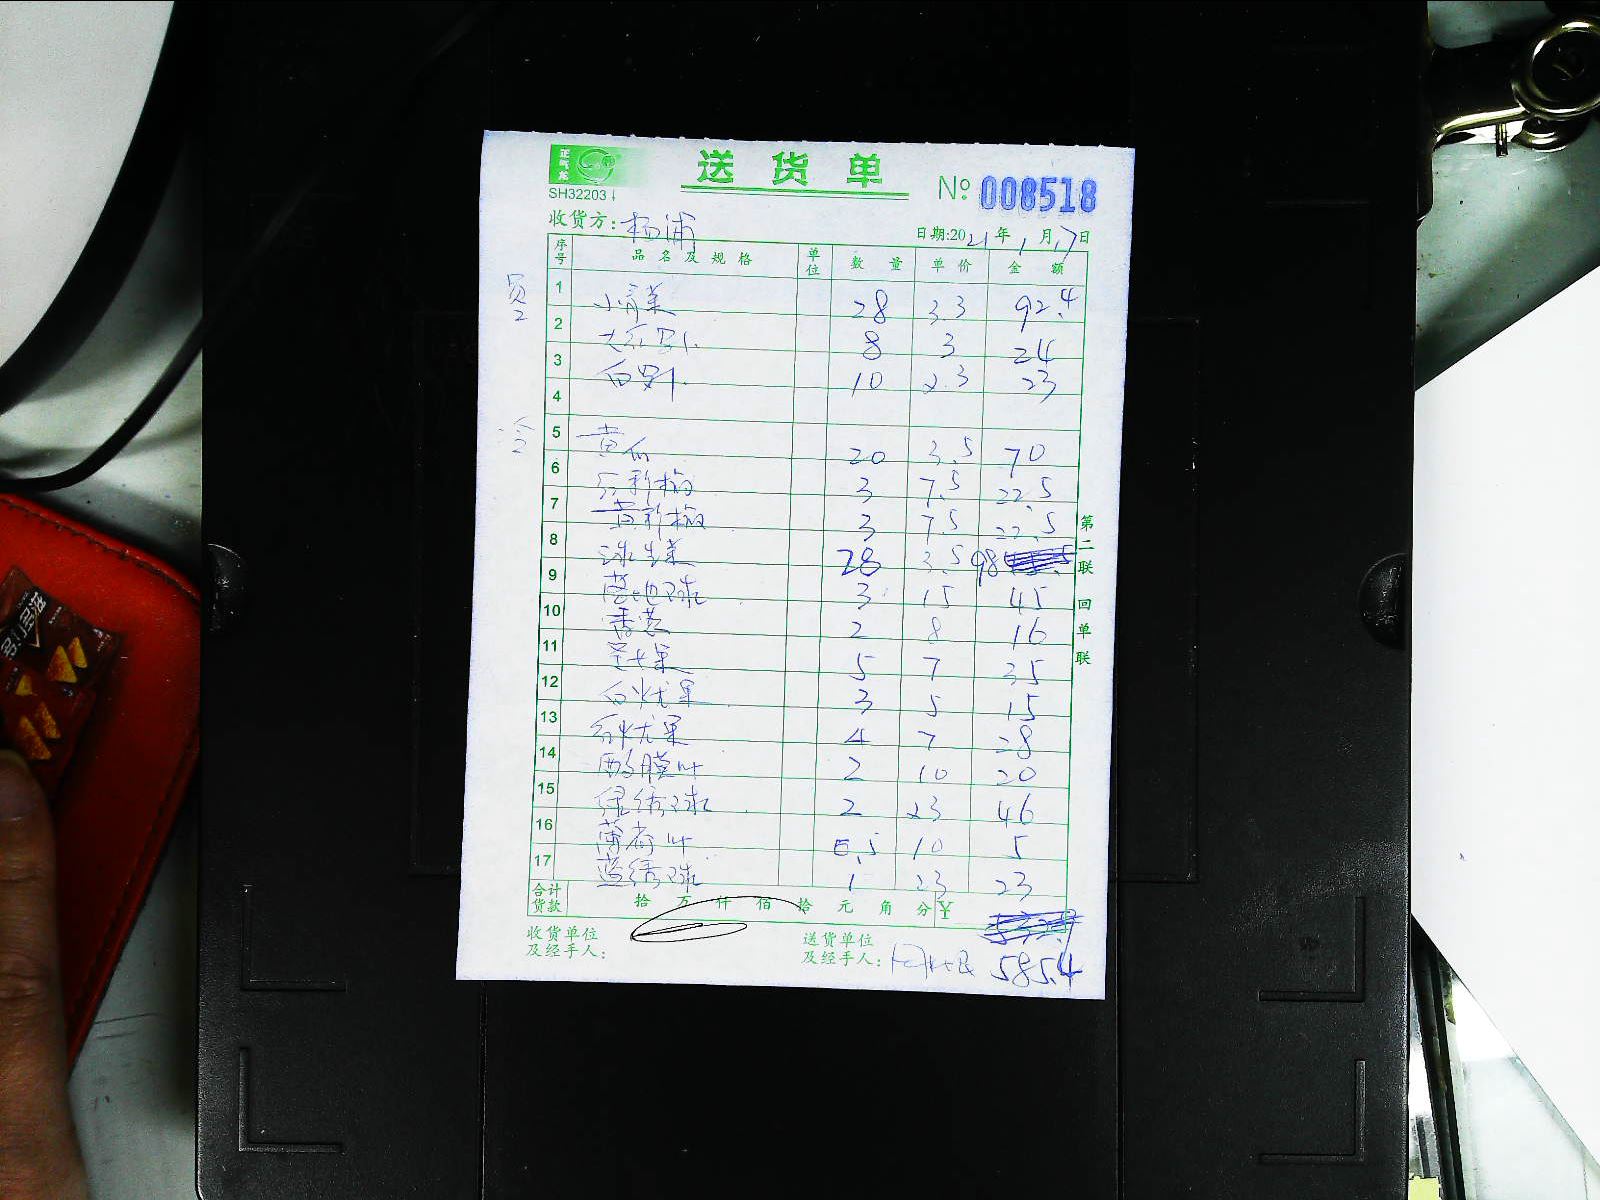 正气龙
送货单
SH32203
№ 008518
收货方: 杨浦
日期:2021年1月17日
序号 品名及规格 单位 数量 单价 金额
1 小青菜 28 3.3 92.4
2 大红罗卜 8 3 24
3 白罗卜 10 2.3 23
4
5 黄瓜 20 3.5 70
6 红彩椒 3 7.5 22.5
7 黄彩椒 3 7.5 22.5
8 球生菜 28 3.5 98
9 苦地球 3 15 45
10 香菜 2 8 16
11 圣女果 5 7 35
12 白火龙果 3 5 15
13 红火龙果 4 7 28
14 叶 2 10 20
15 绿绣球 2 23 46
16 薄荷叶 0.5 10 5
17 蓝绣球 1 23 23
合计货款 拾 万 仟 佰 拾 元 角 分 ¥
585.4
收货单位及经手人:
送货单位及经手人:
第二联 回单联